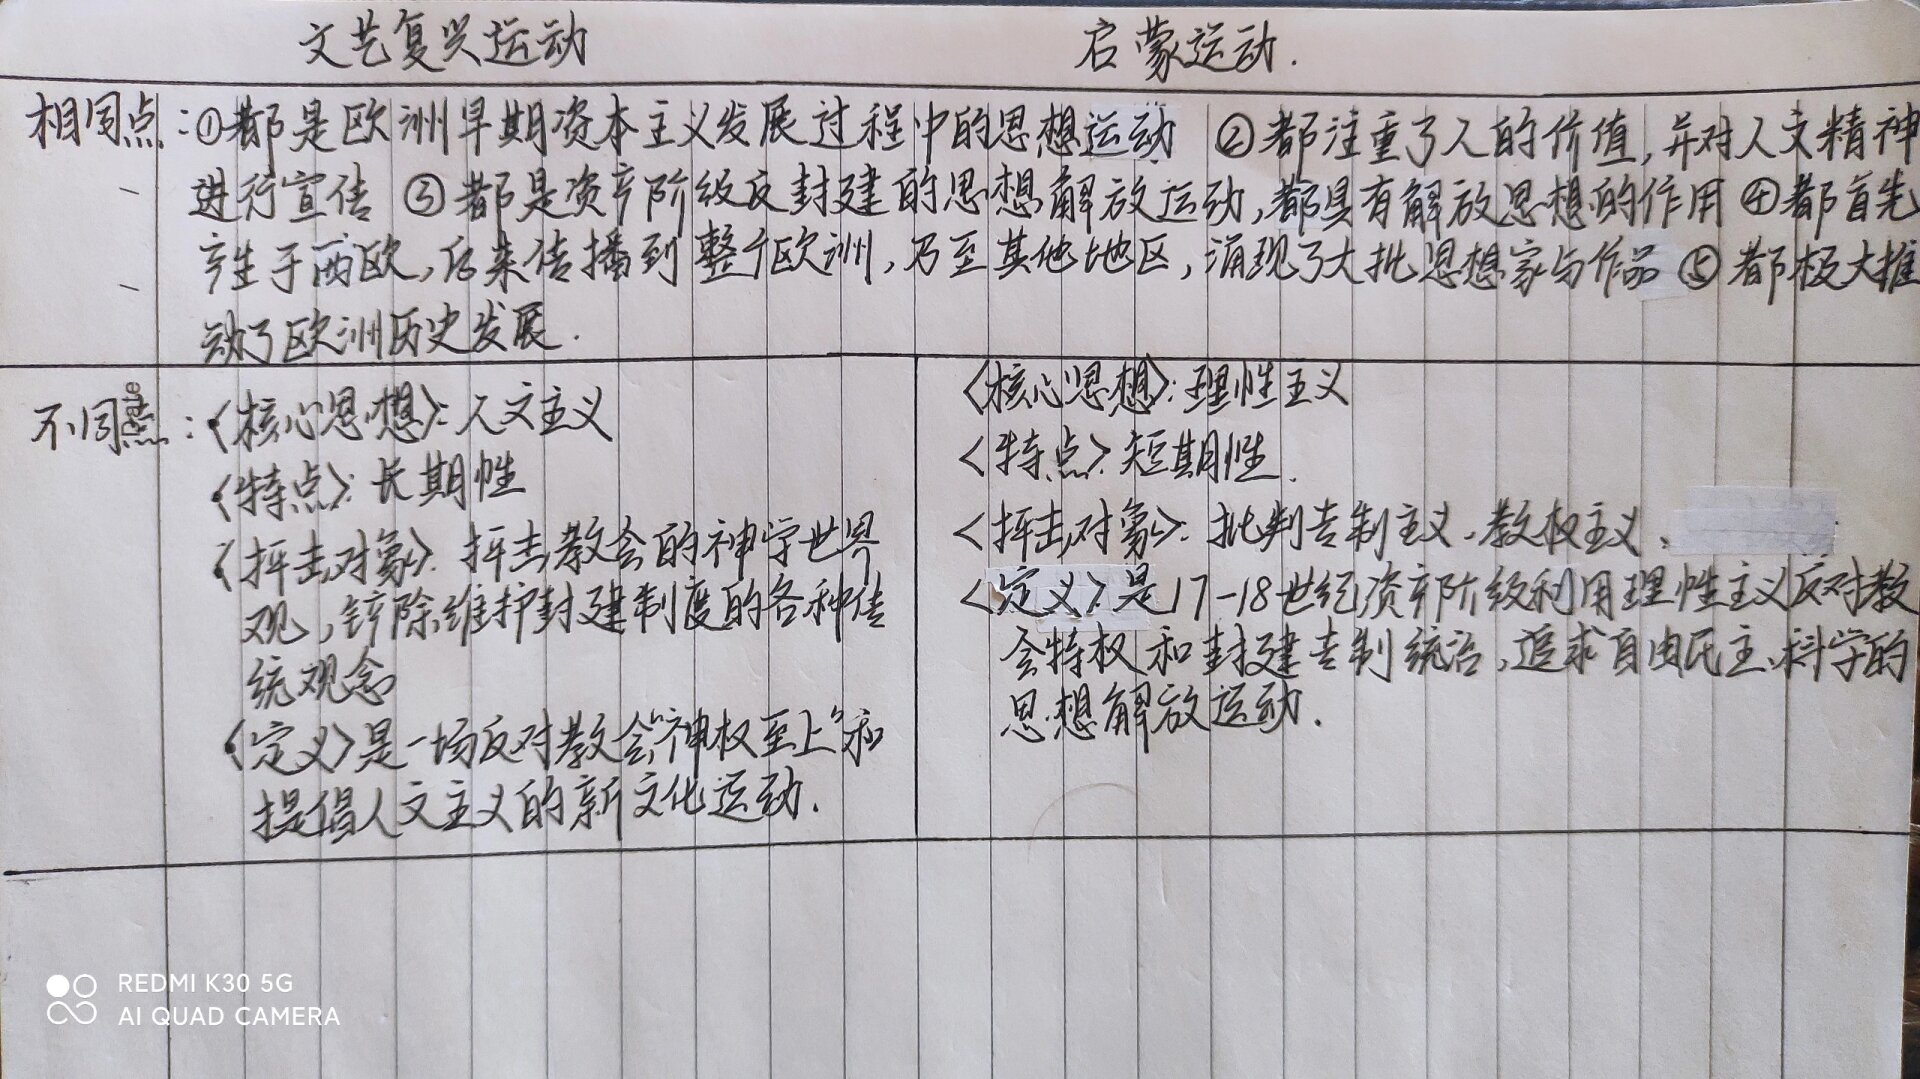 文艺复兴运动
启蒙运动.
相同点:①都是欧洲早期资本主义发展过程中的思想运动 ②都注重了人的价值,并对人文精神
进行宣传 ③都是资产阶级反封建的思想解放运动,都具有解放思想的作用 ④都首先
产生于西欧,后来传播到整个欧洲,乃至其他地区,涌现了大批思想家与作品 ⑤都极大推
动了欧洲历史发展.
不同点:
〈核心思想〉:人文主义
〈特点〉:长期性
〈抨击对象〉:抨击教会的神学世界
观,铲除维护封建制度的各种传
统观念
〈定义〉是一场反对教会"神权至上"和
提倡人文主义的新文化运动.
〈核心思想〉:理性主义
〈特点〉:短期性.
〈抨击对象〉:批判专制主义、教权主义、
〈定义〉:是17-18世纪资产阶级利用理性主义反对教
会特权和封建专制统治,追求自由民主、科学的
思想解放运动.
REDMI K30 5G
AI QUAD CAMERA